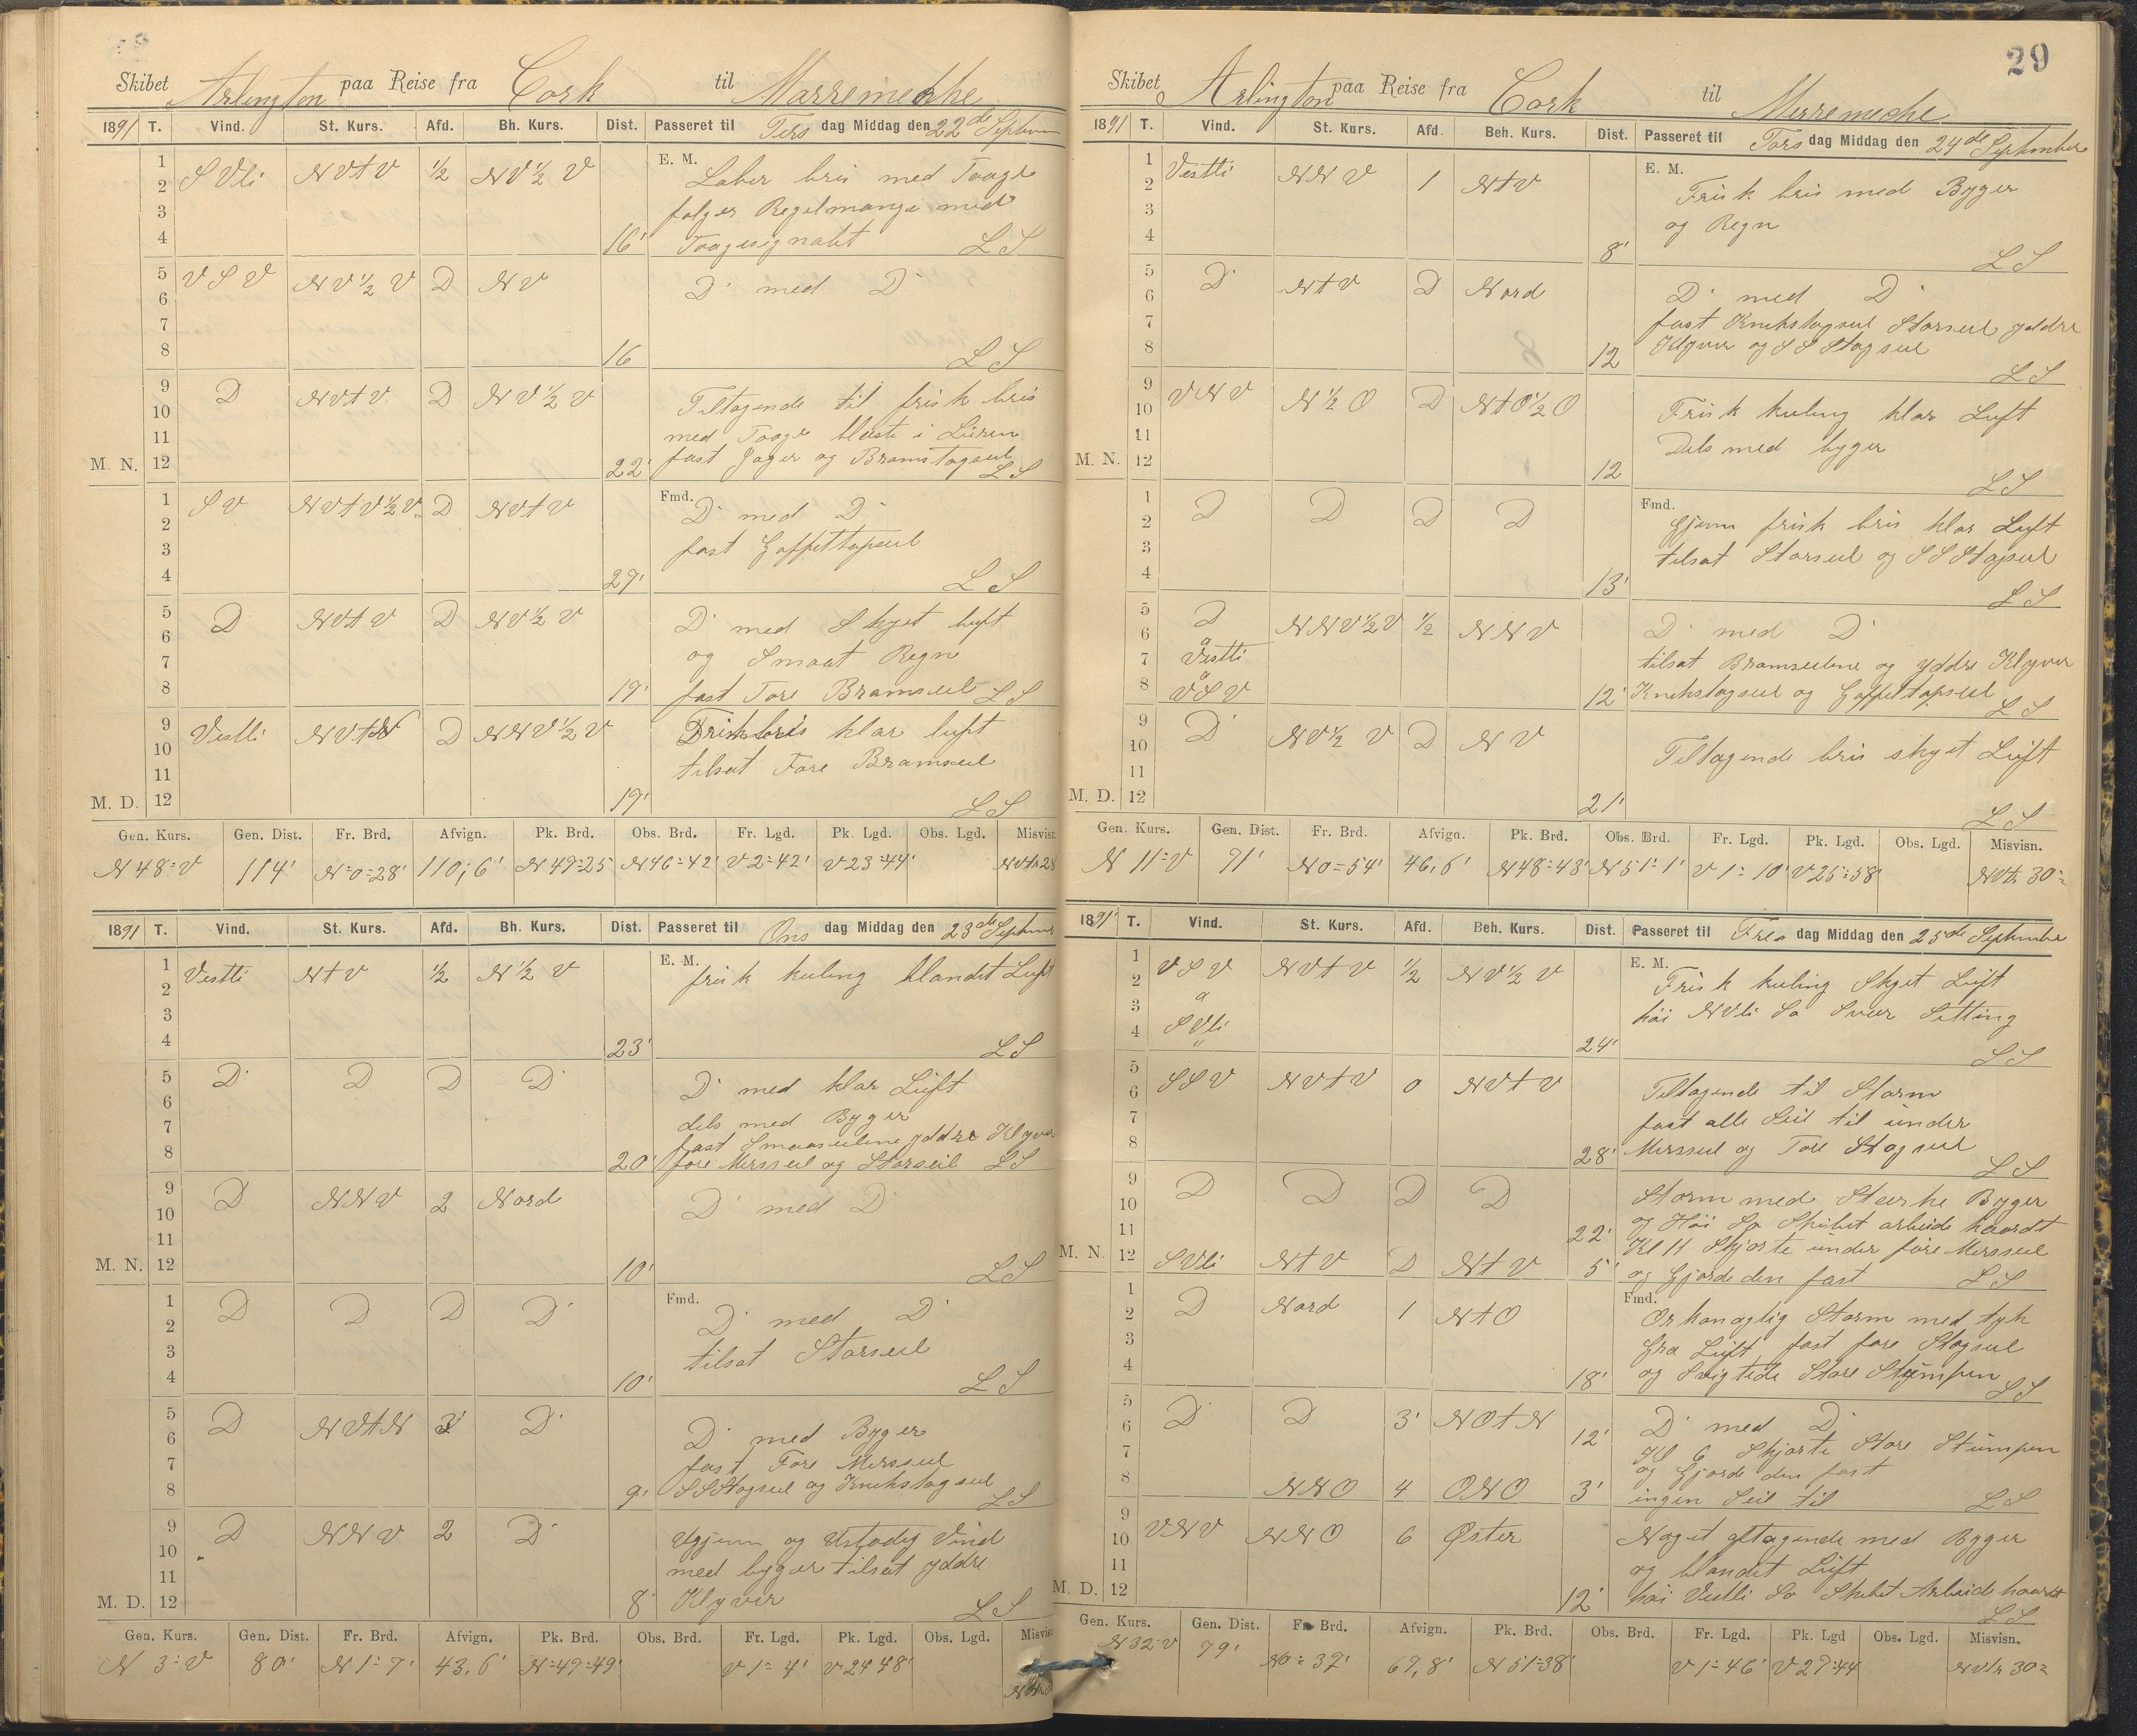 Skibet Arlington paa Reise fra Cork til Marremeche
1891 T. Vind. St. Kurs. Afd. Bh. Kurs. Dist. Passeret til Tirs dag Middag den 22de September
1 2 3 4 SVli NVtV ½ NV½V 16' E. M. Laber bris med Taage
følger Regelmange med
Taagesignalet LS
5 6 7 8 VSV NV½V D NV 16 D med D
LS
9 10 11 M. N. 12 D NVtV D NV½V 22' Tiltagende til frisk bris
med Taage blæste i Luren
fast Jager og Bramstagseil
LS
1 2 3 4 SV NVtV½V D NVtV 27' Fmd. D med D
fast Gaffeltopseil
LS
5 6 7 8 D NVtV D NV½V 19' D med Skyet luft
og Smaat Regn
fast Fore Bramseil LS
9 10 11 M. D. 12 Vestli NVtN D NNV½V 19' Frisk bris klar luft
tilsat Fore Bramseil
LS
Gen. Kurs. Gen. Dist. Fr. Brd. Afvign. Pk. Brd. Obs. Brd. Fr. Lgd. Pk. Lgd. Obs. Lgd. Misvisn.
N48=V 114' N=0=28' 110,6' N49=25 N46=42' V2=42' V23=44' NVtr28
1891 T. Vind. St. Kurs. Afd. Bh. Kurs. Dist. Passeret til Ons dag Middag den 23de September
1 2 3 4 Vestli NtV ½ N½V 23' E. M. frisk kuling blandet Luft
LS
5 6 7 8 D D D D 20' D med klar Luft
dels med Byger
fast Smaaseilene yddre Klyver
fore Mersseil og Storseil LS
9 10 11 M. N. 12 D NNV 2 Nord 10' D med D
LS
1 2 3 4 D D D D 10' Fmd. D med D
tilsat Storseil
LS
5 6 7 8 D NVtN 3' D 9' D med Byger
fast Fore Mersseil
SSStagseil og Knekstagseil
LS
9 10 11 M. D. 12 D NNV 2 D 8' Ugjevn og Ustadig Vind
med byger tilsat yddre
Klyver LS
Gen. Kurs. Gen. Dist. Fr. Brd. Afvign. Pk. Brd. Obs. Brd. Fr. Lgd. Pk. Lgd. Obs. Lgd. Misvisn.
N 3=V 80' N1=7' 43,6' N=49=49' V1=4' V24 48'
29
Skibet Arlington paa Reise fra Cork til Mirremeche
1891 T. Vind. St. Kurs. Afd. Beh. Kurs. Dist. Passeret til Tors dag Middag den 24de September
1 2 3 4 Vestli NNV 1 NtV 8' E. M. Frisk bris med Byger
og Regn
LS
5 6 7 8 D NtV D Nord 12 D med D
fast Knekstagseil Storseil yddre
Klyver og SSStagseil
LS
9 10 11 M. N. 12 VNV N½O D NtO½O 12 Frisk kuling klar Luft
Dels med byger
LS
1 2 3 4 D D D D 13' Fmd. Gjevn frisk bris klar Luft
tilsat Storseil og SSStagseil
LS
5 6 7 8 D a Vestli a VSV NNV½V ½ NNV 12' D med D
tilsat Bramseilene og yddre Klyver
Knekstagseil og Gaffeltopseil
LS
9 10 11 M. D. 12 D NV½V D NV 21' Tiltagende bris skyet Luft
LS
Gen. Kurs. Gen. Dist. Fr. Brd. Afvign. Pk. Brd. Obs. Brd. Fr. Lgd. Pk. Lgd. Obs. Lgd. Misvisn.
N 11=V 91' N0=54' 46,6' N48=43' N51=1' V1=10' V25=58' NVtr 30=
1891 T. Vind. St. Kurs. Afd. Beh. Kurs. Dist. Passeret til Fre dag Middag den 25de September
1 2 3 4 VSV a SVli NVtV ½ NV½V 24' E. M. Frisk kuling Skyet Luft
høi NVli Sø Svær Setting
LS
5 6 7 8 SSV NVtV 0 NVtV 28' Tiltagende til Storm
fast alle Seil til under
Mersseil og Fore Stagseil
LS
9 10 11 D D D D 22' Storm med Stærke Byger
og Høi Sø Skibet arbeide haardt
M. N. 12 SVli NtV D NtV 5' Kl 11 Skjørte under fore Mersseil
og Gjorde den fast LS
1 2 3 4 D Nord 1 NtO 18' Fmd. Orkanaglig Storm med tyk
Gra Luft fast fore Stagseil
og Svigtede Store Stumpen
LS
5 6 D D 3' NOtN 12' D med D
7 8 NNO 4 ONO 3' Kl 6 Skjørte Store Stumpen
og Gjorde den fast
ingen Seil til LS
9 10 11 M. D. 12 VNV NNO 6 Øster 12' Noget aftagende med Byger
og blandet Luft
høi Vestli Sø Skibet Arbeide haardt
LS
Gen. Kurs. Gen. Dist. Fr. Brd. Afvign. Pk. Brd. Obs. Brd. Fr. Lgd. Pk. Lgd Obs. Lgd. Misvisn.
N32=V 79' N0=37' 69,8' N51=38' V1=46' V27=44 NVtr 30=